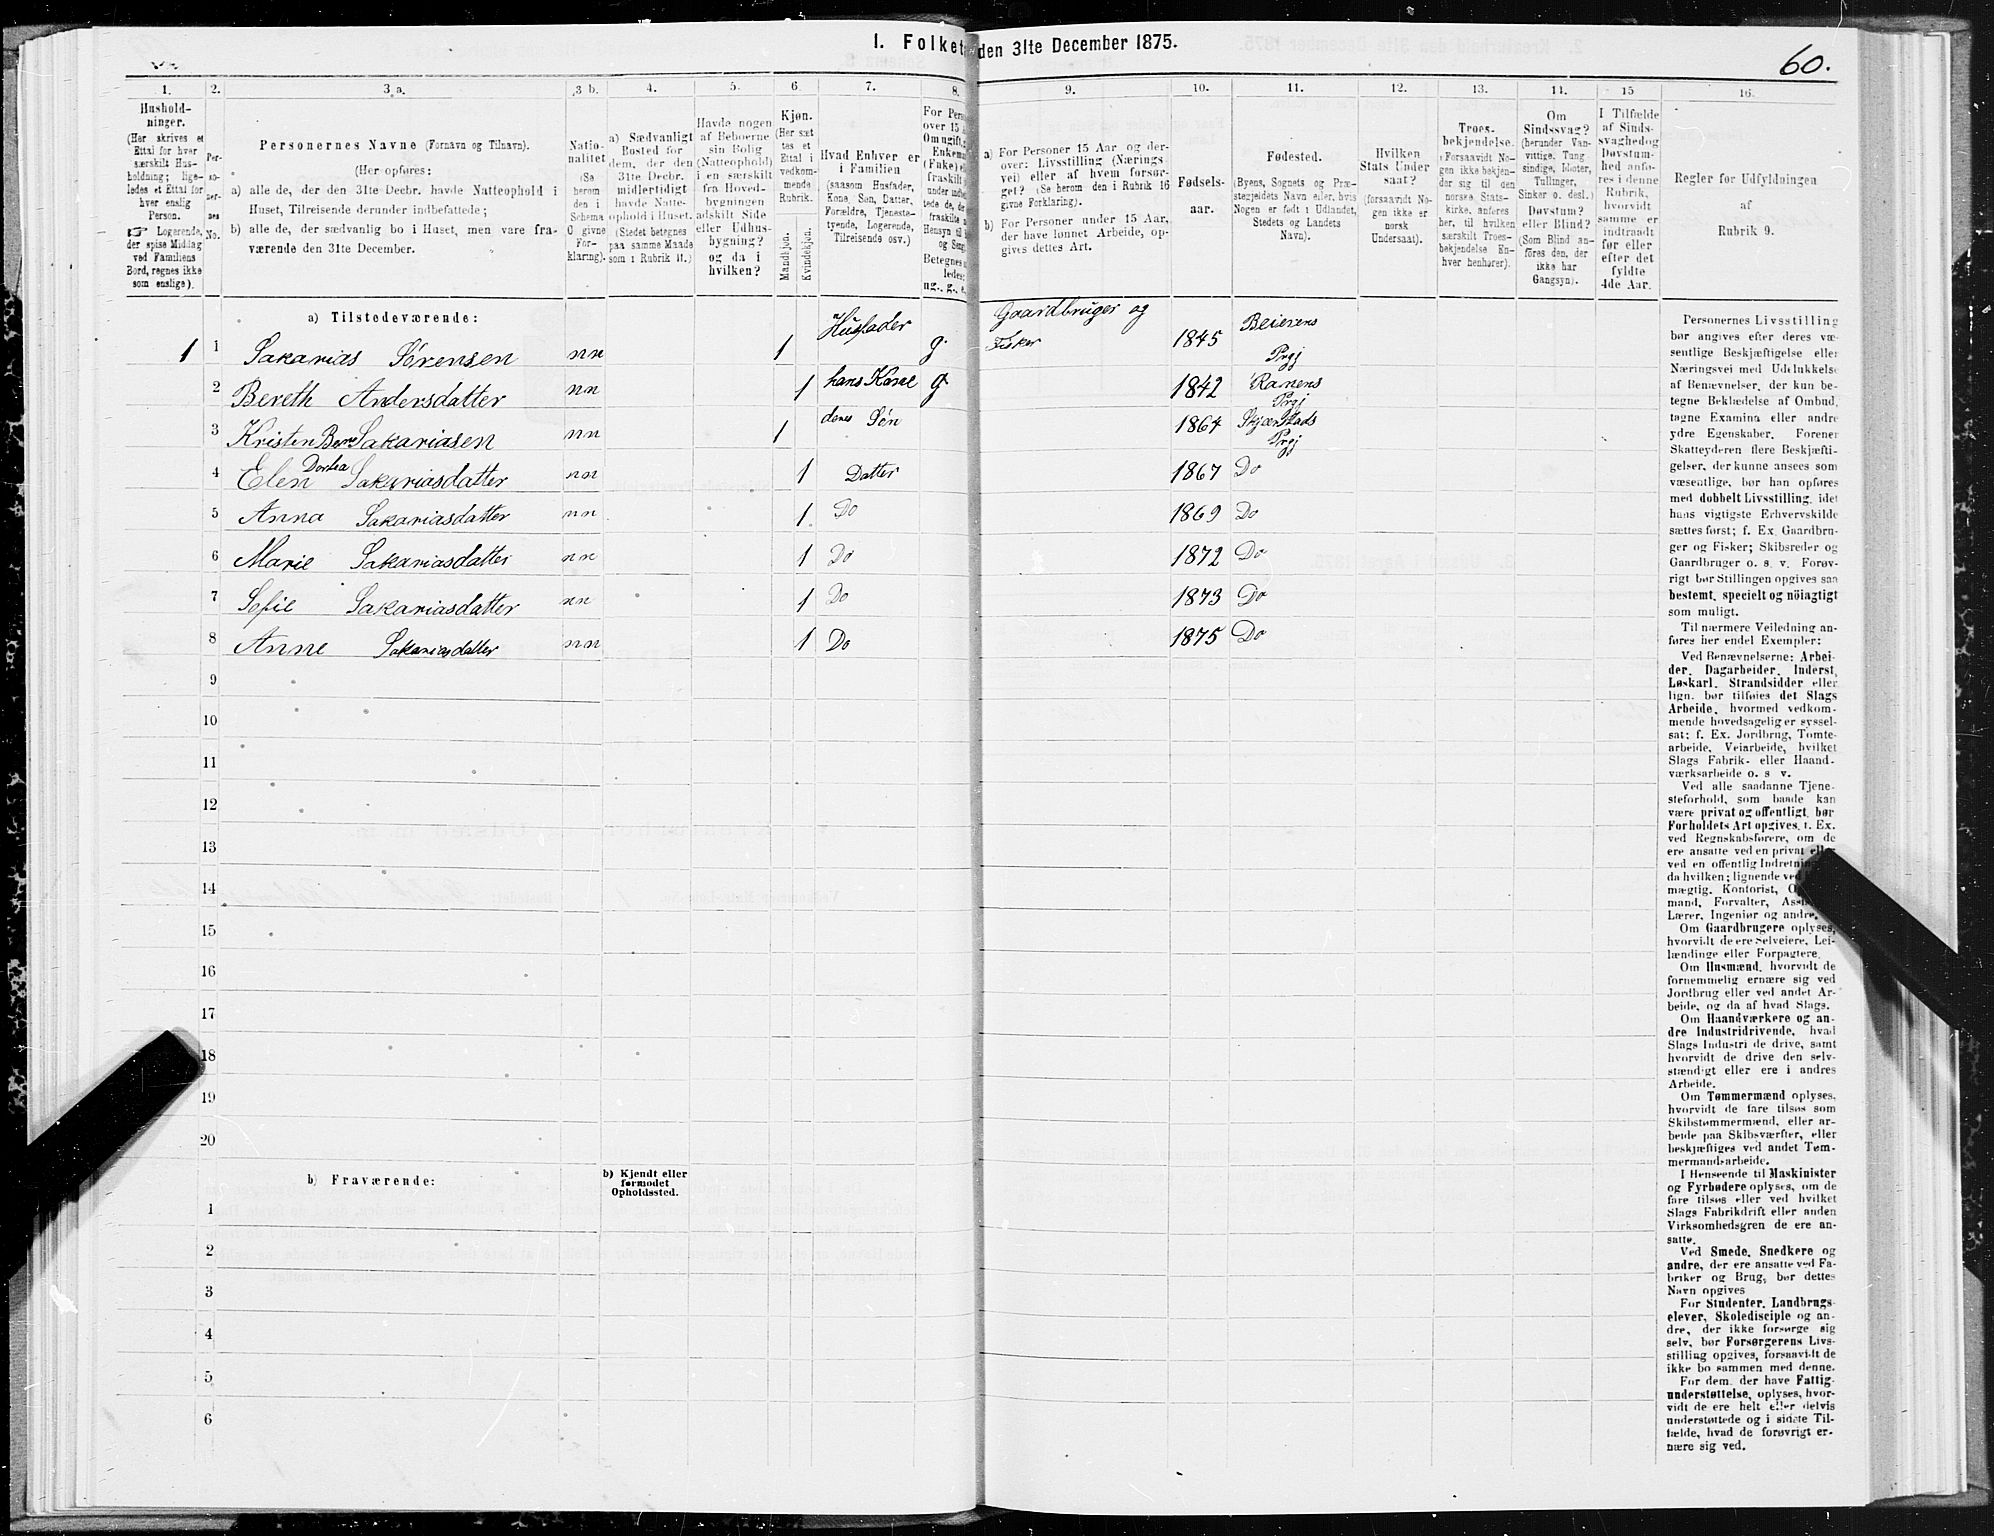 1. Folket den 31te December 1875.
60.
1. 2. 3 a. 3 b. 4. 5. 6. 7. 8. 9. 10. 11. 12. 13. 14. 15 16.
Hushold-
ninger.
(Her skrives et
Ettal for hver
særskilt Hus-
holdning; lige-
ledes et Ettal for
hver enslig
Person.
☞ Logerende,
der spise Middag
ved Familiens
Bord, regnes ikke
som enslige).
Per-
so-
ner-
nes
No.
Personernes Navne (Fornavn og Tilnavn).
(Her opføres:
a) alle de, der den 31te Decbr. havde Natteophold i
Huset, Tilreisende derunder indbefattede;
b) alle de, der sædvanlig bo i Huset, men vare fra-
værende den 31te December.
Natio-
nalitet
(Se
herom
den i
Schema
O givne
For-
klaring).
a) Sædvanligt
Bosted for
dem, der den
31te Decbr.
midlertidigt
havde Natte-
ophold i Huset.
(Stedet betegnes
paa samme Maade
som i Rubrik 11.)
Havde nogen
af Beboerne
sin Bolig
(Natteophold)
i en særskilt
fra Hoved-
bygningen
adskilt Side
eller Udhus-
bygning?
og da i
hvilken?
Kjøn.
(Her sæt
tes et
Ettal i
vedkom-
mende
Rubrik.
Mandkjøn.
Kvindekjøn.
Hvad Enhver er
i Familien
(saasom Husfader,
Kone, Søn, Datter,
Forældre, Tjeneste-
tyende, Logerende,
Tilreisende osv.)
For Pers
over 15 A
Om ugift,
Enkema
(Enke) e
fraskilt
under
tede de,
fraskilte
Hensyn til
og Seng
Betegnes
ledes:
ug., g., e.
a) For Personer 15 Aar og der-
over: Livsstilling (Nærings
vei) eller af hvem forsør-
get? (Se herom den i Rubrik 16
givne Forklaring).
b) For Personer under 15 Aar,
der have lønnet Arbeide, op-
gives dettes Art.
Fødsels-
aar.
Fødested.
(Byens, Sognets og Præ-
stegjeldets Navn eller, hvis
Nogen er født i Udlandet,
Stedets og Landets
Navn).
Hvilken
Stats Under
saat?
(forsaavidt No-
gen ikke er
norsk
Undersaat).
Troes-
bekjendelse.
(Forsaavidt No-
gen ikke bekjen-
der sig til den
norske Stats-
kirke, anføres
her, til hvilken
særskilt Troes-
bekjendelse En-
hver henhører).
Om
Sindssvag?
(herunder Van-
vittige, Tung
sindige, Idioter,
Tullinger,
Sinker o. desl.)
Døvstum?
eller Blind?
(Som Blind an-
føres den, der
ikke har
Gangsyn).
I Tilfælde
af Sinds-
svaghed og
Døvstum-
hed anfø-
res i denne
Rubrik,
hvorvidt
samme er
indtraadt
før eller
efter det
fyldte
4de Aar.
Regler for Udfyldningen
af
Rubrik 9.
a) Tilstedeværende:
1 1 Sakarias Sørensen nn 1 Husfader g Gaardbruger og Fisker 1845 Beierens Prgj
2 Bereth Andersdatter nn 1 hans Kone g 1842 Ranens Prgj
3 Kristen Bern Sakariasen nn 1 deres Søn 1864 Skjærstads Prgj
4 Elen Dortea Sakariasdatter nn 1 Datter 1867 Do
5 Anna Sakariasdatter nn 1 Do 1869 Do
6 Marie Sakariasdatter nn 1 Do 1872 Do
7 Sofie Sakariasdatter nn 1 Do 1873 Do
8 Anne Sakariasdatter nn 1 Do 1875 Do
9
10
11
12
13
14
15
16
17
18
19
20
b) Fraværende:
b) Kjendt eller
formodet
Opholdssted.
1
2
3
4
5
6
Personernes Livsstilling
bør angives efter deres væ-
sentlige Beskjæftigelse eller
Næringsvei med Udelukkelse
af Benævnelser, der kun be-
tegne Beklædelse af Ombud,
tagne Examina eller andre
ydre Egenskaber. Forener
Skatteyderen flere Beskjæfti-
gelser, der kunne ansees som
væsentlige, bør han opføres
med dobbelt Livsstilling, idet
hans vigtigste Erhvervskilde
sættes først; f. Ex. Gaardbru-
ger og Fisker; Skibsreder og
Gaardbruger o. s. v. Forøv-
rigt bør Stillingen opgives saa
bestemt, specielt og nöiagtigt
som muligt.
Til nærmere Veiledning an-
føres her endel Exempler:
Ved Benævnelserne: Arbei-
der, Dagarbeider, Inderst,
Løskarl, Strandsidder eller
lign. bør tilføies det Slags
Arbeide, hvormed vedkom-
mende hovedsagelig er syssel-
sat; f. Ex. Jordbrug, Tomte-
arbeide, Veiarbeide, hvilket
Slags Fabrik- eller Haand-
værksarbeide o. s. v.
Ved alle saadanne Tjene-
steforhold, som baade kan
være privat og offentligt, bør
Forholdets Art opgives, f. Ex.
ved Regnskabsførere, om de
ere ansatte ved en privat eller
ved en offentlig Indretning
da hvilken; lignende ved
mægtig, Kontorist, O
mand, Forvalter, Assis
Lærer, Ingeniør og andre.
Om Gaardbrugere oplyses,
hvorvidt de ere Selveiere, Lei-
lændinge eller Forpagtere.
Om Husmænd, hvorvidt de
fornemmelig ernære sig ved
Jordbrug eller ved andet Ar-
beide, og da af hvad Slags.
Om Haandværkere og an-
dre Industridrivende, hvad
Slags Industri de drive, samt
hvorvidt de drive den selv-
stændigt eller ere i andres
Arbeide.
Om Tømmermænd oplyses,
hvorvidt de fare tilsøs som
Skibstømmermænd, eller ar-
beide paa Skibsværfter, eller
beskjæftiges ved andet Tøm-
mermandsarbeide.
I Henseende til Maskinister
og Fyrbødere oplyses, om de
fare tilsøs eller ved hvilket
Slags Fabrikdrift eller anden
Virksomhedsgren de ere an-
satte.
Ved Smede, Snedkere og
andre, der ere ansatte ved Fa-
briker og Brug, bør dettes
Navn opgives
For Studenter, Landbrugs-
elever, Skoledisciple og an-
dre, der ikke forsørge sig
selv, bør Forsørgerens Livs-
stilling opgives, forsaavidt de
ikke bo sammen med denne.
For dem, der have Fattig-
understøttelse, oplyses, hvor-
vidt de ere helt eller delvis
understøttede og i sidste Til-
fælde, hvad de forøvrigt er-
nære sig ved.